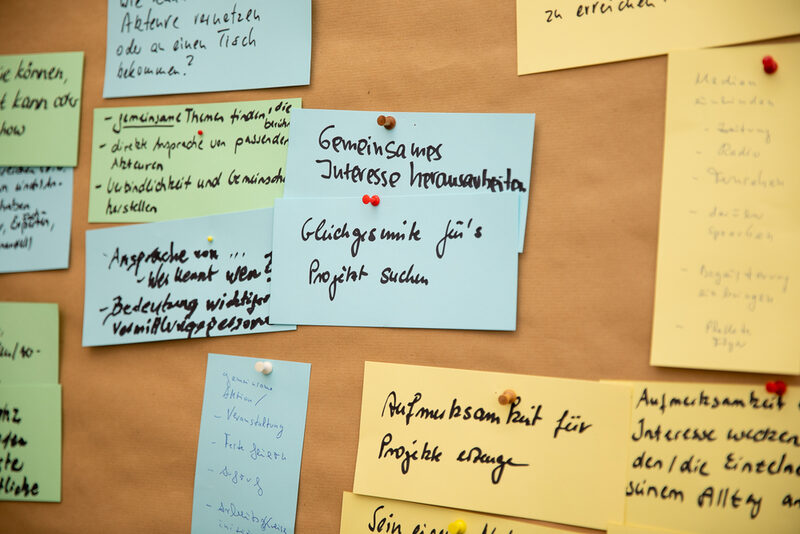 Akteure vernetzen
oder an einen Tisch
bekommen?
zu erreichen!
ie können,
t kann oder
how
- gemeinsame Themen finden, die
berüh
- direkte Ansprache von passenden
Akteuren
- Verbindlichkeit und Gemeinscha
herstellen
Gemeinsames
Interesse herausarbeiten
Gleichgesinnte für's
Projekt suchen
- Ansprache von ...
- Wer kennt wen?
- Bedeutung wichtiger
Vermittlungsperson
Medien
einbinden
- Zeitung
- Radio
- Fernsehen
- darüber
sprechen
- Begeisterung
einbringen
- Plakate
Flyer
gemeinsame
Aktion/
- Veranstaltung
- Feste feiern
Aufmerksamkeit für
Projekte erzeuge
Aufmerksamkeit
Interesse wecken
den/die Einzelne
seinem Alltag
Sein